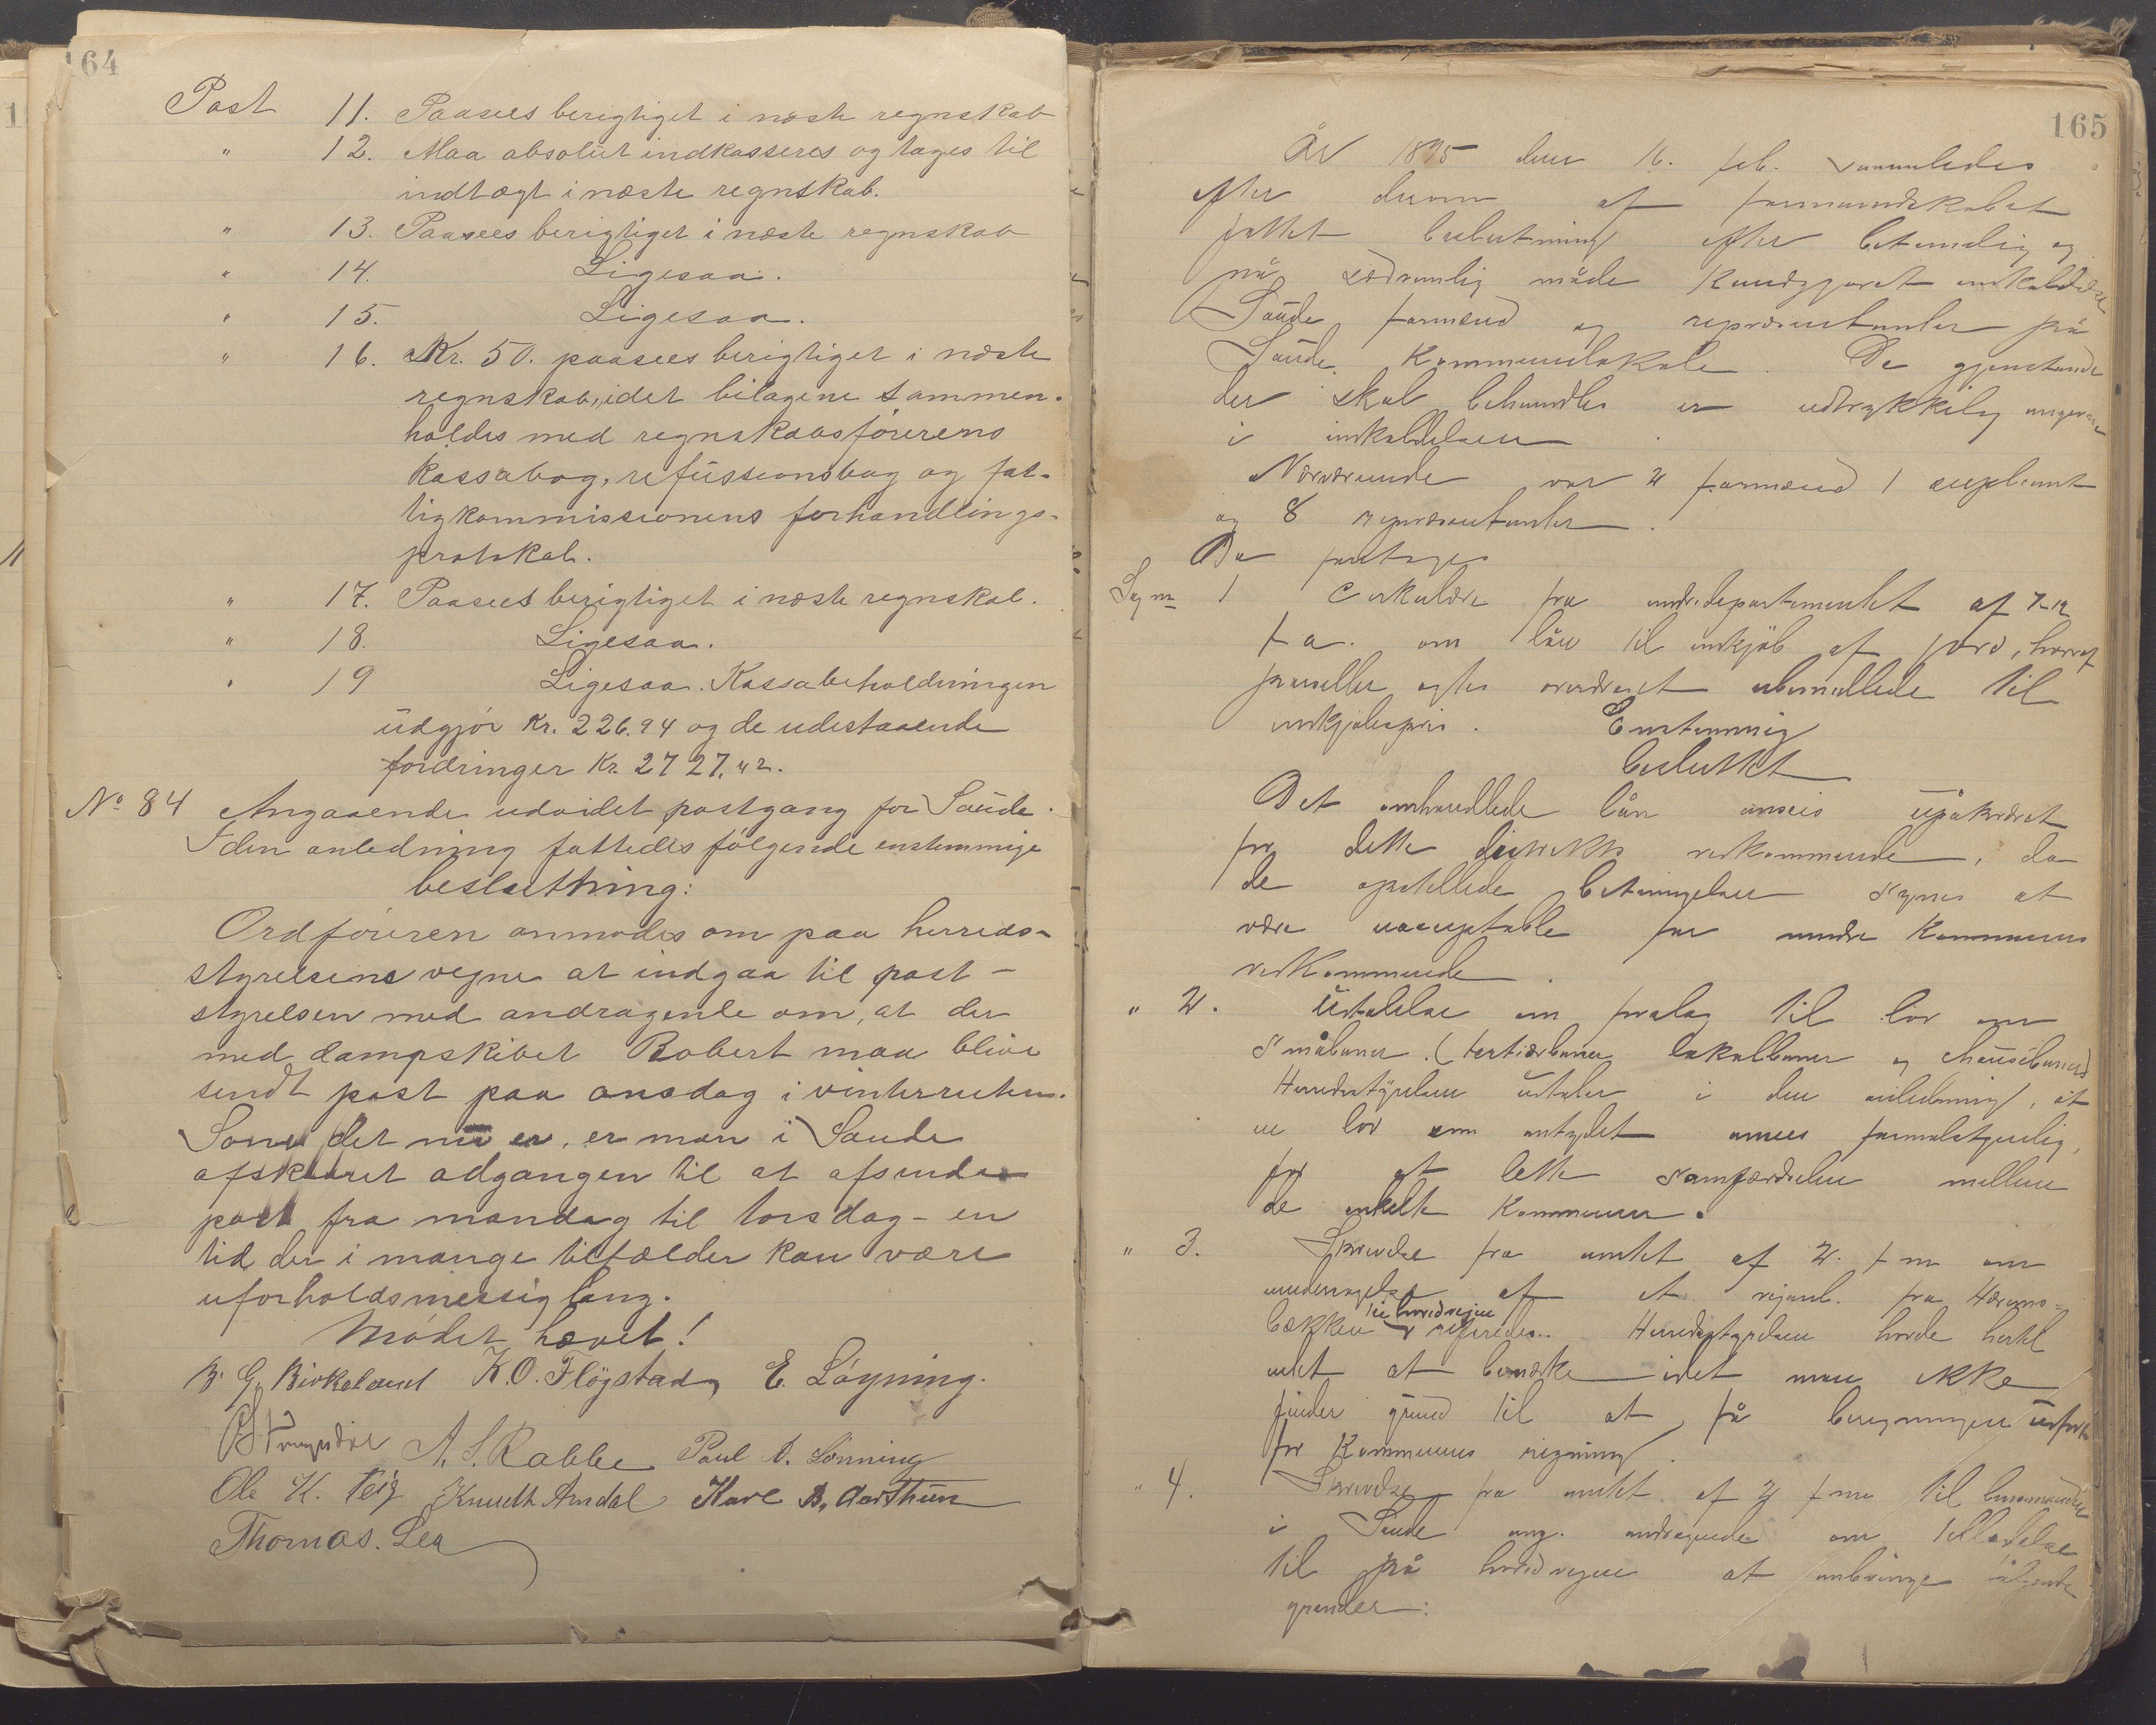 164
Post 11. Paasees berigtiget i næste regnskab
" 12. Maa absolut indkasseres og tages til
indtægt i næste regnskab.
" 13. Paasees berigtiget i næste regnskab
" 14. Ligesaa.
" 15. Ligesaa.
" 16. Kr. 50. paasees berigtiget i næste
regnskab, idet bilagene sammen-
holdes med regnskabsförerens
kassabog, refusionsbog og fat-
tigkommissionens forhandlings-
protokol.
" 17. Paasees berigtiget i næste regnskab.
" 18. Ligesaa.
" 19 Ligesaa. Kassabeholdningen
udgjör Kr. 226.94 og de udestaaende
fordringer Kr. 2727,42.
No 84 Angaaende udvidet postgang for Saude.
I den anledning fattedes fölgende enstemmige
beslutning:
Ordföreren anmodes om paa herreds-
styrelsens vegne at indgaa til post-
styrelsen med andragende om, at der
med dampskibet Robert maa blive
sendt post paa onsdag i vinterruten.
Som det nu er, er man i Saude
afskaaret adgangen til at afsende
post fra mandag til torsdag - en
tid der i mange tilfælder kan være
uforholdsmessig lang.
Mödet hævet!
B. G. Birkeland K. O. Flögstad E. Löyning.
A. S. Rabbe Paul A. Lönning
Ole K. Teig Knudt Amdal Kare B. Aarthun
Thomas. Lea
165
År 1895 den 16. feb. sammledes
efter derom af formandskabet
fattet beslutning efter betimelig og
på sedvanlig måde kundgjoret indkaldelse
Saude formænd og repræsentanter på
Saude Kommunelokale. De gjenstande
der skal behandles er udtrykkelig angivne
i indkaldelsen.
Nærværende var 4 formænd 1 supleant
og 8 repræsentanter.
Da foretoges
Sag no 1 Cirkulære fra indredepartementet af 7-12
f a. om lån til indkjöb af jord, hvoraf
parceller agtes overdraget ubemidlede til
indkjöbspris. Enstemmig
besluttet
Det omhandlede lån ansees upåkrævet
for dette distrikts vedkommende, da
de opstillede betingelser synes at
være uacceptable for mindre Kommuners
vedkommende.
" 2. Udtalelse om forslag til lov om
Småbaner (tertiærbaner, lokalbaner og chausébaner)
Herredsstyrelsen udtaler i den anledning, at
en lov som antydet ansees formålstjenlig,
for at lette samfærdselen mellem
de enkelte Kommuner.
" 3. Skrivelse fra amtet af 2. f m om
undersögelse af et vejanl. fra
bækken til hovedvejen refereredes. Herredsstyrelsen havde hertil
intet at bemærke idet man ikke
finder grund til at få beregningen udfört
for Kommunens regning.
" 4. Skrivelse fra amtet af 2 f m til lensmanden
i Saude ang. andragende om tilladelse
til på hovedvejen at anbringe fölgende
grander: